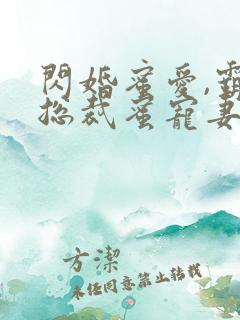 閃婚蜜愛,霸
總裁蜜寵妻
方潔
未任同意禁止转载